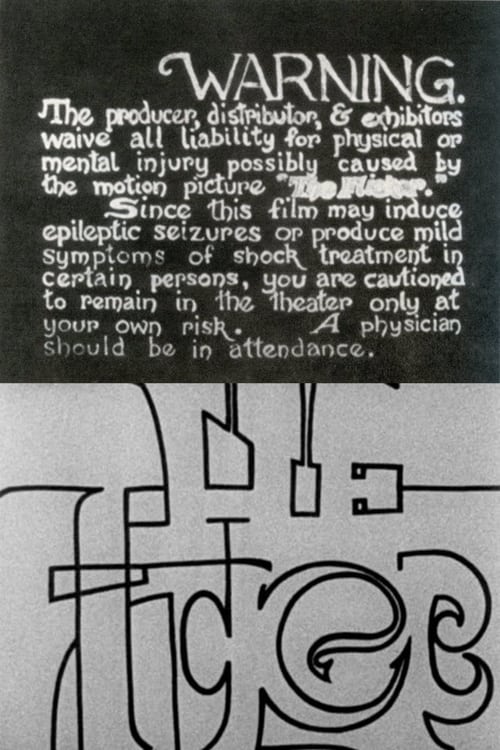 WARNING.
The producer, distributor, & exhibitors
waive all liability for physical or
mental injury possibly caused by
the motion picture "The Flicker."
Since this film may induce
epileptic seizures or produce mild
symptoms of shock treatment in
certain persons, you are cautioned
to remain in the theater only at
your own risk. A physician
should be in attendance.
THE
flicker